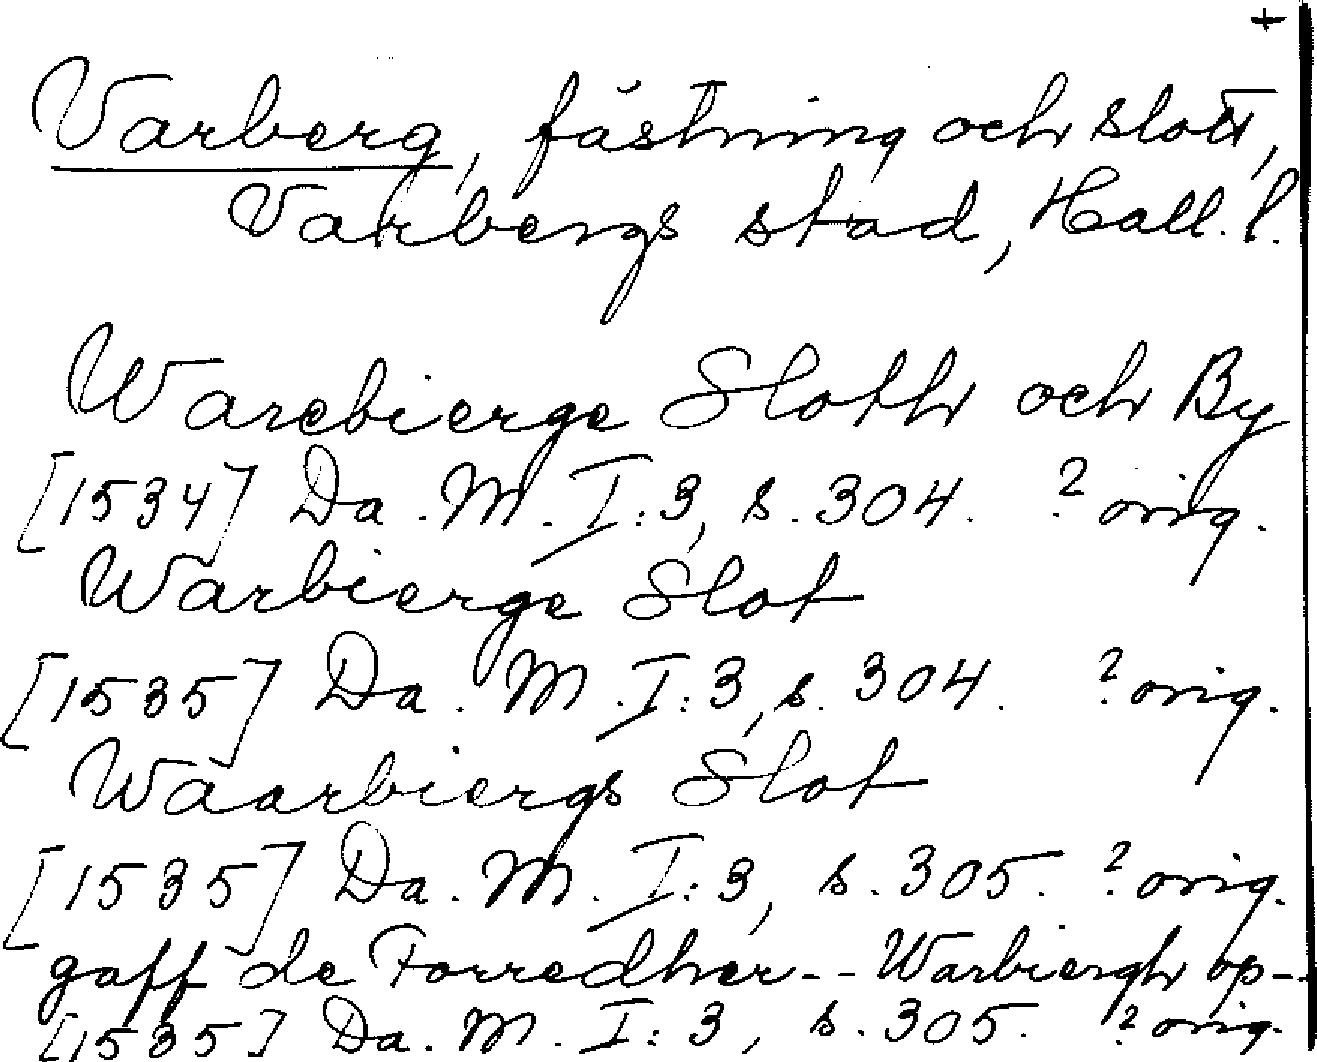 +
Varberg, fästning och slott,
Varbergs stad, Hall. l.
Warebierge Sloth och By
[1534] Da. M. I:3, s. 304. ? orig.
Warbierge Slot
[1535] Da. M. I:3, s. 304. ? orig.
Waarbiergs Slot
[1535] Da. M. I:3, s. 305. ? orig.
gaff de Forredher-- Warbiergh op--
[1535] Da. M. I:3, s. 305. ? orig.